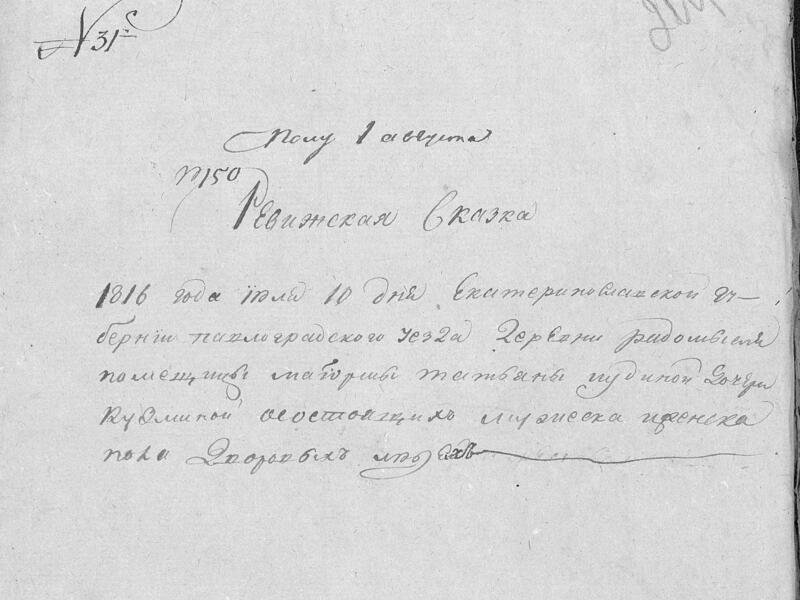 № 31
Полу 1 августа
№ 150
Ревижская Сказка
1816 года июля 10 дня Екатеринославской гу-
бернии павлоградского уезда деревни радомысля
помещицы маиорши татьяны дочери
Кудминой о состоящих мужеска и женска
пола Дворовых людехъ